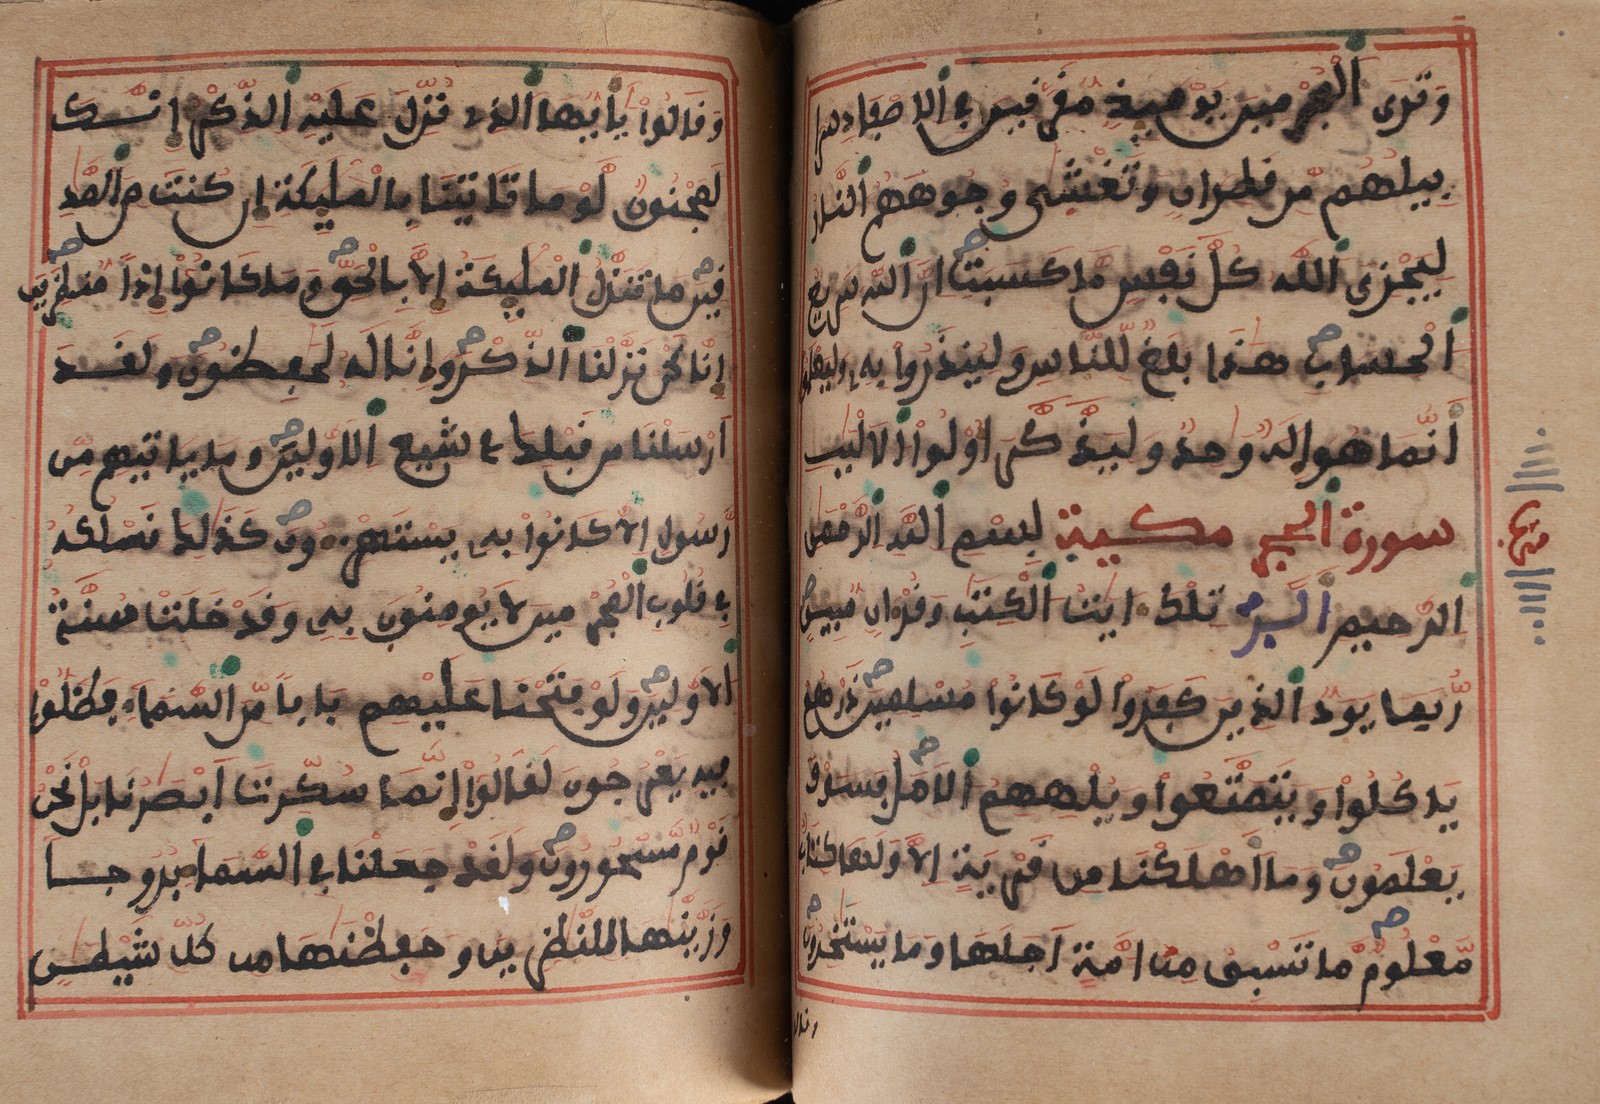 وَتَرَى اَ۬لْمُجْرِمِينَ يَوْمَئِذٖ مُّقَرَّنِينَ فِے اِ۬لَاصْفَادِ سَرَٰ
بِيلُهُم مِّن قَطِرَانٖ وَتَغْش۪ىٰ وُجُوهَهُمُ اُ۬لنَّارُ
لِيَجْزِيَ اَ۬للَّهُ كُلَّ نَفْسٖ مَّا كَسَبَتِ اِنَّ اَ۬للَّهَ سَرِيعُ
اُ۬لْحِسَابِ هَٰذَا بَلَٰغٞ لِّلنَّاسِ وَلِيُنذَرُواْ بِهِۦ وَلِيَعْلَمُوٓاْ
أَنَّمَا هُوَ إِلَٰهٞ وَٰحِدٞ وَلِيَذَّكَّرَ أُوْلُواْ اُ۬لَالْبَٰبِ
سورة الحجر مكية بِسْمِ اِ۬للَّهِ اِ۬لرَّحْمَٰنِ
اِ۬لرَّحِيمِ أَلَٓر۪ تِلْكَ ءَايَٰتُ اُ۬لْكِتَٰبِ وَقُرْءَانٖ مُّبِينٖ
رُّبَمَا يَوَدُّ اُ۬لذِينَ كَفَرُواْ لَوْ كَانُواْ مُسْلِمِينَ ذَرْهُمْ
يَاكُلُواْ وَيَتَمَتَّعُواْ وَيُلْهِهِمُ اُ۬لَامَلُ فَسَوْفَ
يَعْلَمُونَ وَمَا أَهْلَكْنَا مِن قَرْيَةٍ اِلَّا وَلَهَا كِتَابٞ
مَّعْلُومٞ مَّا تَسْبِقُ مِنُ ا۟مَّةٍ اَجَلَهَا وَمَا يَسْتَٰخِرُونَ
وقالوا
وَقَالُواْ يَٰأَيُّهَا اَ۬لذِے نُزِّلَ عَلَيْهِ اِ۬لذِّكْرُ إِنَّكَ
لَمَجْنُونٞ لَّوْ مَا تَاتِينَا بِالْمَلَٰئِكَةِ إِن كُنتَ مِنَ اَ۬لصَّٰدِ
قِينَ مَا تَنَزَّلُ اُ۬لْمَلَٰئِكَةُ إِلَّا بِالْحَقِّ وَمَا كَانُواْ إِذاٗ مُّنظَرِينَ
إِنَّا نَحْنُ نَزَّلْنَا اَ۬لذِّكْرَ وَإِنَّا لَهُۥ لَحَٰفِظُونَ وَلَقَدَ
اَرْسَلْنَا مِن قَبْلِكَ فِے شِيَعِ اِ۬لَاوَّلِينَ وَمَا يَاتِيهِم مِّن
رَّسُولٍ اِلَّا كَانُواْ بِهِۦ يَسْتَهْزِءُونَ كَذَٰلِكَ نَسْلُكُهُۥ
فِے قُلُوبِ اِ۬لْمُجْرِمِينَ لَا يُومِنُونَ بِهِۦ وَقَدْ خَلَتْ سُنَّةُ
اُ۬لَاوَّلِينَ وَلَوْ فَتَحْنَا عَلَيْهِم بَاباٗ مِّنَ اَ۬لسَّمَآءِ فَظَلُّواْ
فِيهِ يَعْرُجُونَ لَقَالُواْ إِنَّمَا سُكِّرَتَ اَبْصَٰرُنَا بَلْ نَحْنُ
قَوْمٞ مَّسْحُورُونَ وَلَقَدْ جَعَلْنَا فِے اِ۬لسَّمَآءِ بُرُوجاٗ
وَزَيَّنَّٰهَا لِلنَّٰظِرِينَ وَحَفِظْنَٰهَا مِن كُلِّ شَيْطَٰنٖ